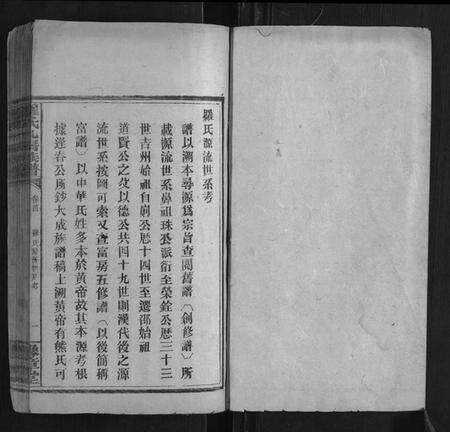 羅氏源流世系考
譜以溯本尋源爲宗旨查閱舊譜（創修譜）所
載源流世系鼻祖珠公派衍至榮銓公歷三十三
世吉州始祖自廁公歷十四世至遷邵始祖
道賢公之父以德公共四十九世則漢代後之源
流世系按圖可索又查富房五修譜（以後簡稱
富譜）以中華氏姓多本於黃帝故其本源考根
據逢春公所鈔大成族譜稿上溯黃帝有熊氏可
羅氏
族譜
卷首
羅氏源流世系考
一